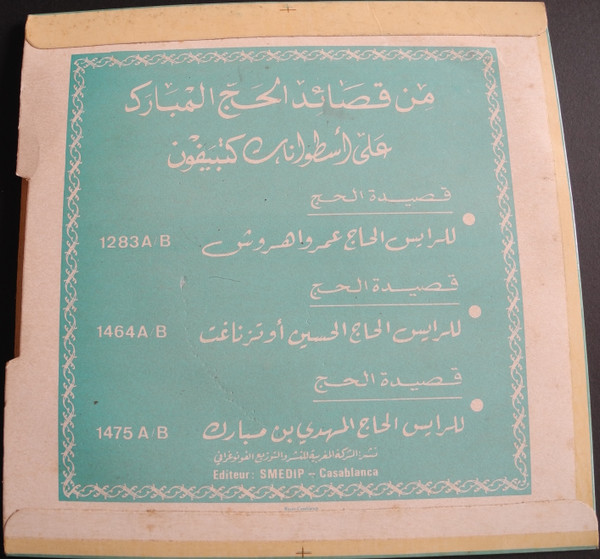 من قصائد الحج المبارك
على أسطوانات كتبيفون
قصيدة الحج
للرايس الحاج عمر واهروش 1283 A/B
قصيدة الحج
للرايس الحاج الحسين أوتزناغت 1464 A/B
قصيدة الحج
للرايس الحاج المهدي بن مبارك 1475 A/B
نشر: الشركة المغربية للنشر والتوزيع الفونوغرافي
Editeur: SMEDIP – Casablanca